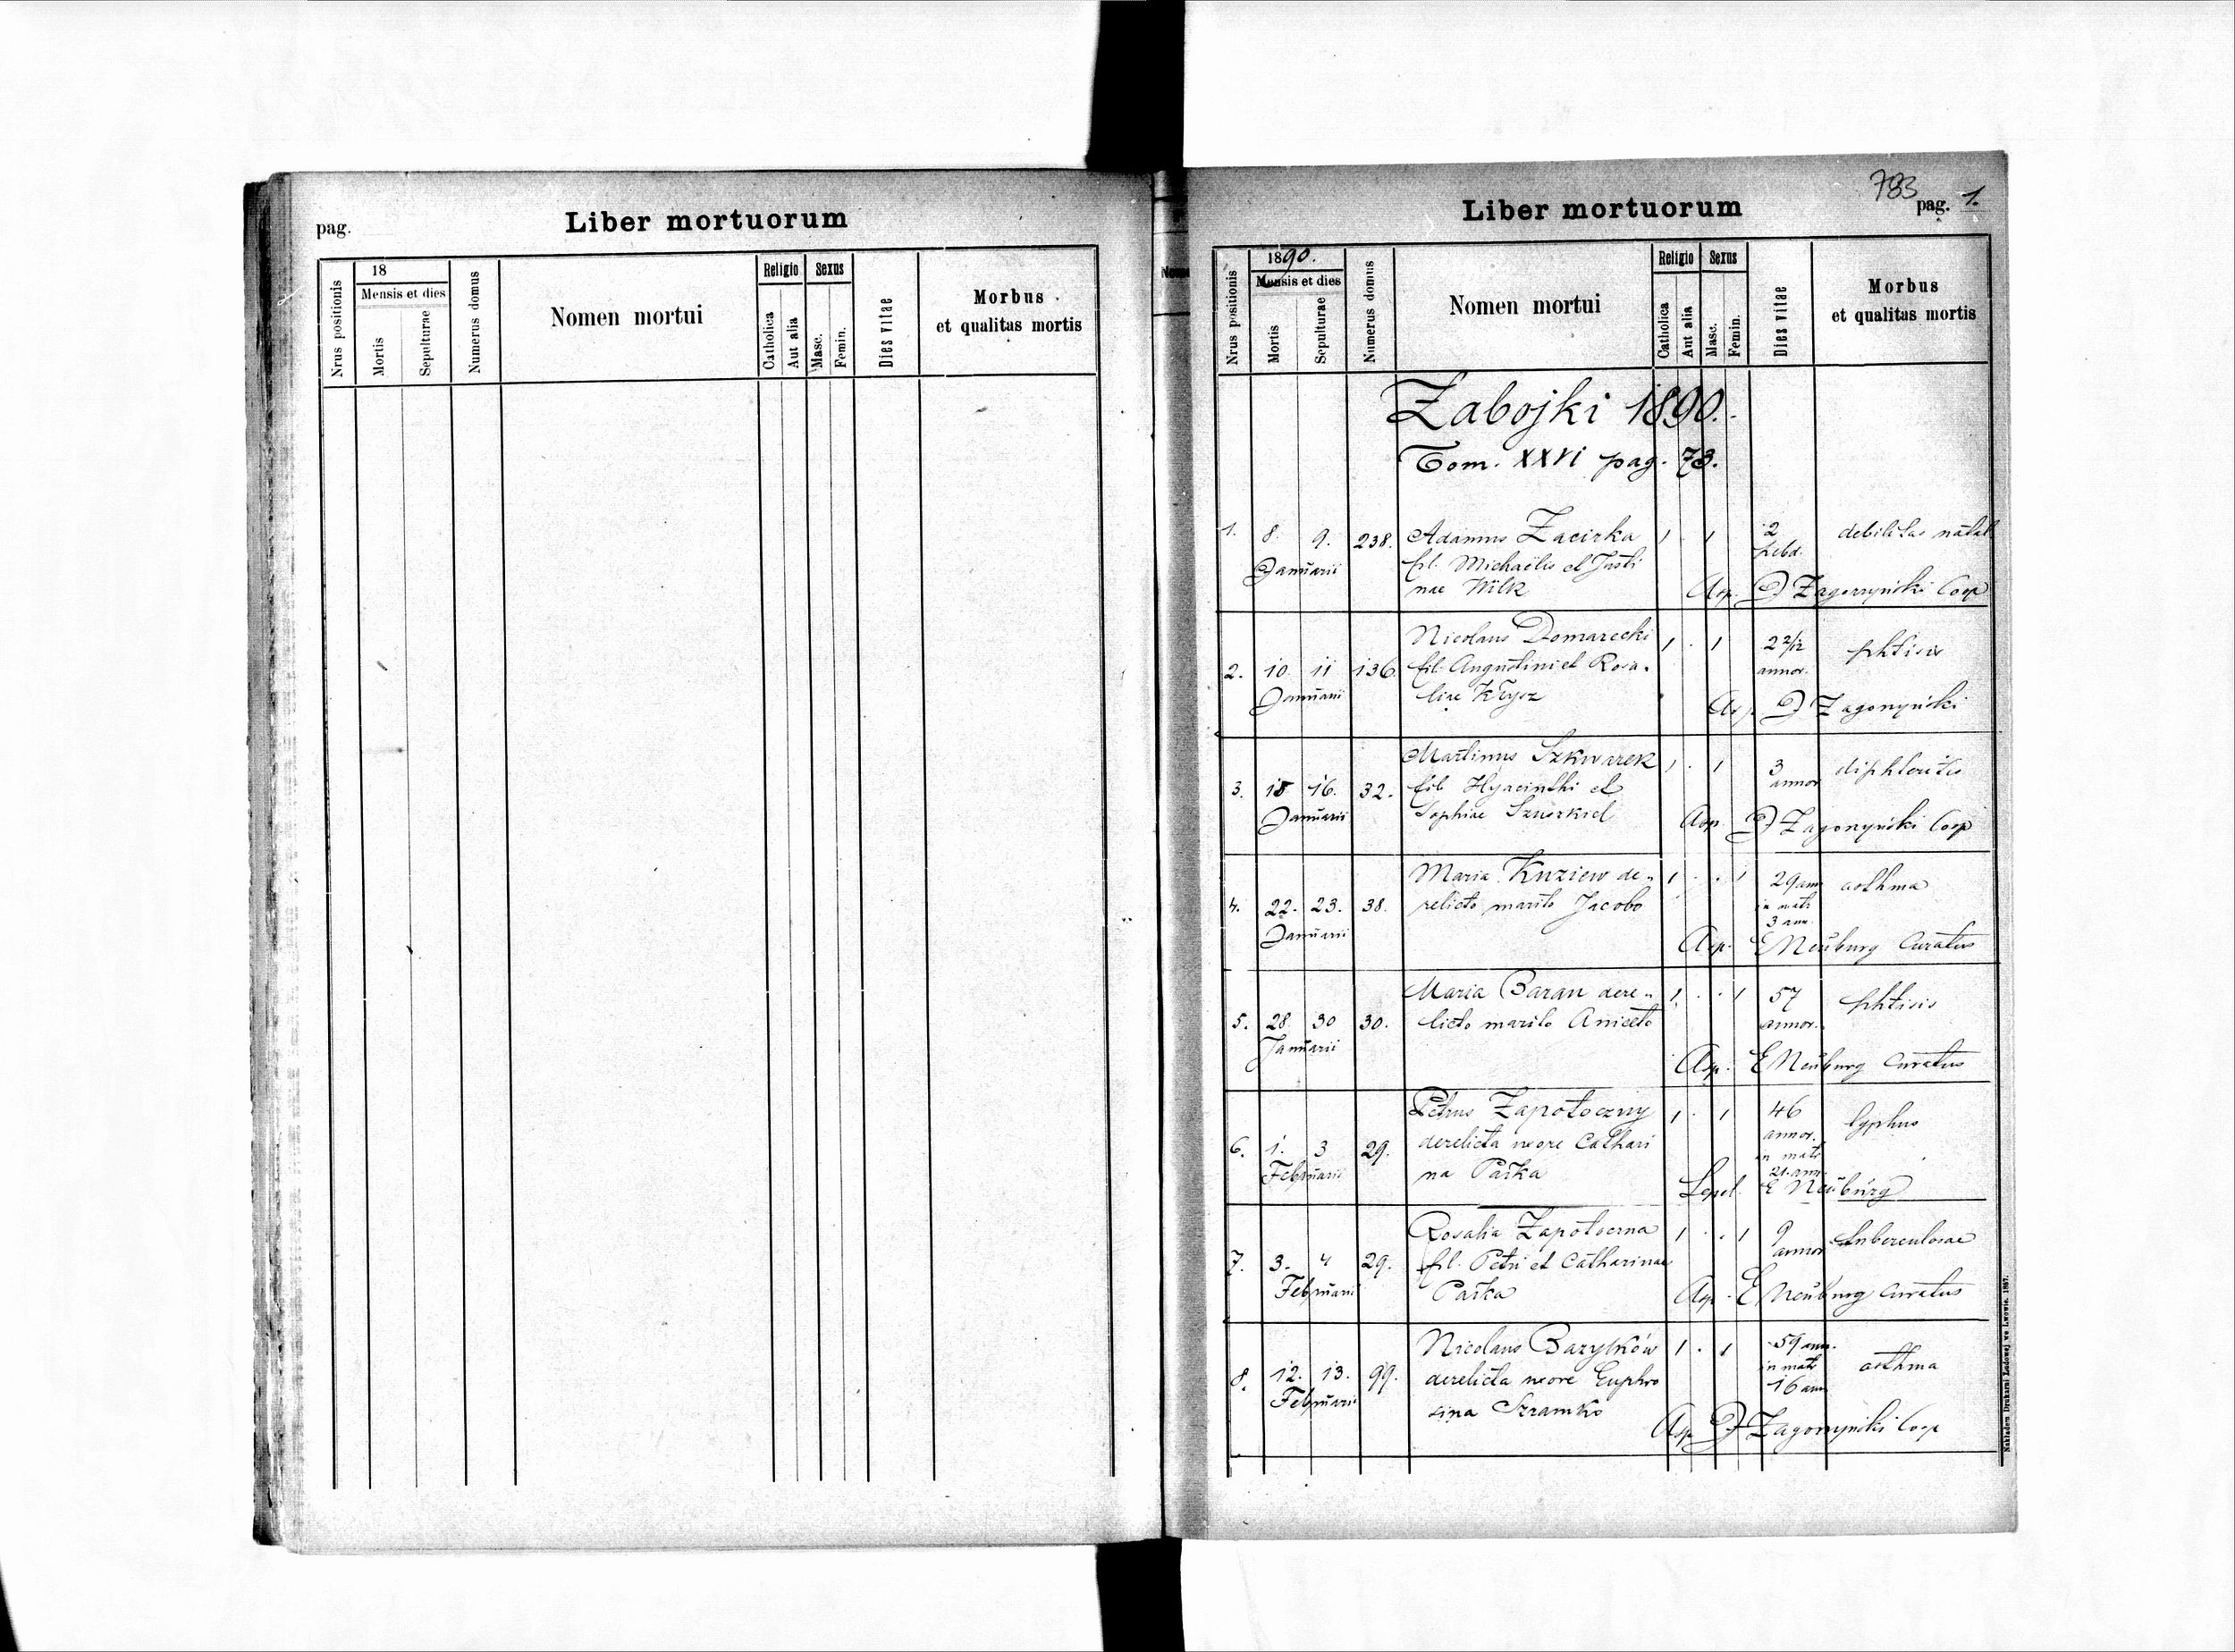 pag.
Liber mortuorum
Nrus positionis
18
Mensis et dies
Mortis
Sepulturae
Numerus domus
Nomen mortui
Religio
Catholica
Aut alia
Sexus
Masc.
Femin.
Dies vitae
Morbus
et qualitas mortis
783
Liber mortuorum
pag. 1.
Nrus positionis
1890.
Mensis et dies
Mortis
Sepulturae
Numerus domus
Nomen mortui
Religio
Catholica
Aut alia
Sexus
Masc.
Femin.
Dies vitae
Morbus
et qualitas mortis
Zabojki 1890.
Tom. XXVI pag. 73.
1. 8. 9. 238. Adamus Zacirka 1 . 1 2 debilitas natal.
Januarii fil. Michaëlis et Justi hebd.
nae Wilk Asp. Zagorzyński Coop
Nicolaus Domarecki 1 . 1 2 2/12 phtisis
2. 10. 11 136 fil. Augustini et Rosa- annor.
Januarii liae Krysz Asp. Zagorzyński
Martinus Szkwarek 1 . 1 3 diphteritis
3. 15 16. 32. fil. Hyacinthi et annor
Januarii Sophiae Asp. Zagorzyński Coop
Maria Kuziew de- 1 . . 1 29 ann asthma
4. 22. 23. 38. relicto marito Jacobo in matr
Januarii 3 ann.
Asp. E Neuburg Curatus
Maria Baran dere- 1. . . 1 57 phtisis
5. 28. 30 30. licto marito Aniceto annor.
Januarii
Asp. E Neuburg Curatus
Petrus Zapotoczny 1 . 1 46 typhus
6. 1. 3 29. derelicta uxore Cathari annor.
Februarii na Paika in matr
21. ann.
Sepel. E Neuburg
Rosalia Zapotoczna 1 . . 1 9 tuberculosae
7. 3. 4 29. fil. Petri et Catharinae annor
Februarii Paika Asp. E Neuburg Curatus
Nicolaus Bazylków 1 . 1 59 ann. asthma
8. 12. 13. 99. derelicta uxore Euphro in matr
Februarii sina Szramko 16 ann
Asp Zagorzyński Coop
Nakładem Drukarni Ludowej we Lwowie. 1887.